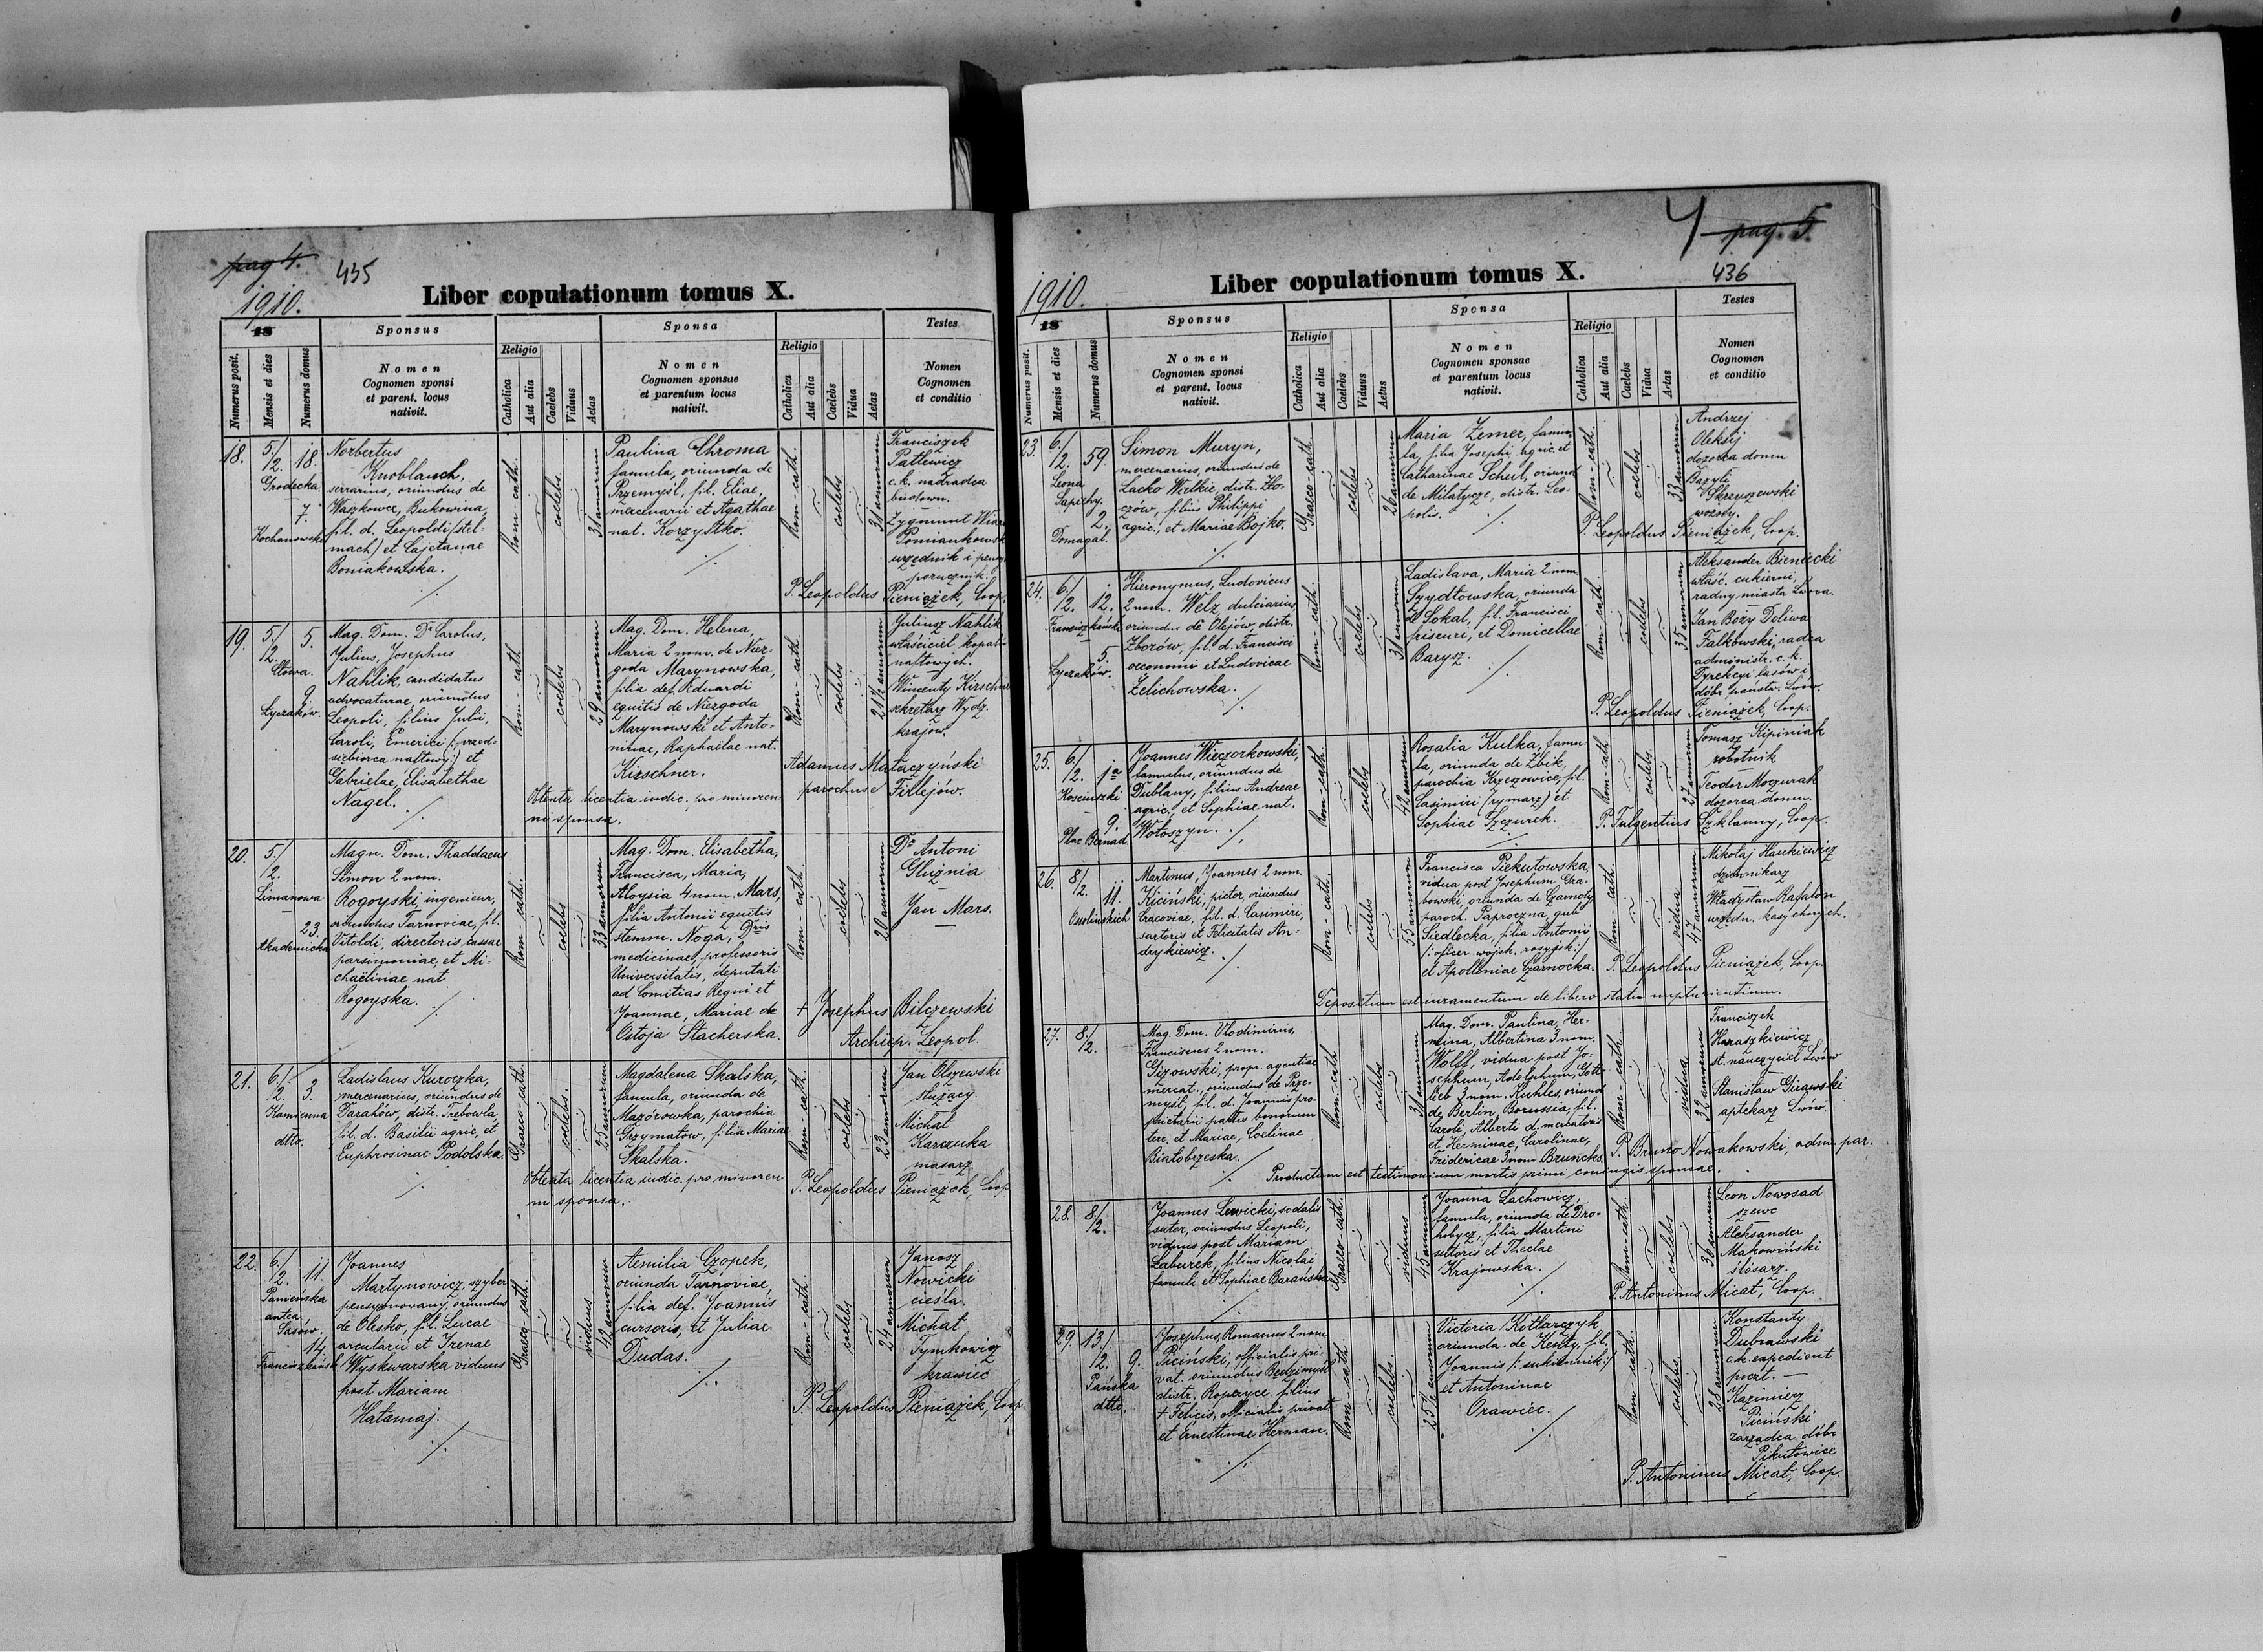 pag 4.
435
1910.
Liber copulationum tomus X.
18
Sponsus
Sponsa
Testes
Numerus posit.
Mensis et dies
Numerus domus
Nomen
Cognomen sponsi
et parent. locus
nativit.
Religio
Catholica
Aut alia
Caelebs
Viduus
Aetas
Nomen
Cognomen sponsae
et parentum locus
nativit.
Religio
Catholica
Aut alia
Caelebs
Vidua
Aetas
Nomen
Cognomen
et conditio
18.
5./12.
18.
Grodecka
7.
Kochanowski
Norbertus
Knoblauch,
serrarius, oriundus de
Waszkowce, Bukowina,
fil. d. Leopoldi (stel-
mach) et Cajetanae
Boniakowska.
Rom-cath.
coelebs
31 annorum
Paulina Chroma
famula, oriunda de
Przemyśl, fil. Eliae,
mercenarii et Agathae
nat. Korzystko.
Rom-cath.
coelebs
31 annorum
Franciszek
Patlewicz
c.k. nadradca
budown.
Zygmunt
Pomiankowski
urzędnik i
porucznik.
P. Leopoldus Pieniążek, Coop.
19.
5./12.
5.
Słowa.
9.
Łyczaków.
Mag. Dom. Dr Carolus,
Julius, Josephus
Nahlik, candidatus
advocaturae, oriundus
Leopoli, filius Julii,
Caroli, Emerici (: przed-
siebiorca naftowy:) et
Gabrielae, Elisabethae
Nagel.
Rom-cath.
coelebs
29 annorum
Mag. Dom. Helena,
Maria 2 nom. de Niez-
goda Marynowska,
filia def. Eduardi
equitis de Niezgoda
Marynowski et Anto-
ninae, Raphaëlae nat.
Kirschner.
Rom-cath.
coelebs
21½ annorum
Juliusz Nahlik
właściciel kopalń
naftowych.
Wincenty Kirschner
sekretarz Wydz.
krajow.
Adamus Mataczyński
parochus Fillejów.
Obtenta licentia iudic. pro minoren-
ni sponsa.
20.
5./12.
Limanowa
23.
Akademicka
Magn. Dom. Thaddaeus
Simon 2 nom.
Rogoyski, ingenieur,
oriundus Tarnoviae, fil.
Vitoldi, directoris cassae
parsimoniae, et Mi-
chaëlinae nat
Rogoyska.
Rom-cath.
coelebs
33 annorum
Mag. Dom. Elisabetha,
Francisca, Maria,
Aloysia 4 nom. Mars,
filia Antonii equitis
stemm. Noga, Dris
medicinae, professoris
Universitatis, deputati
ad Comitias Regni et
Joannae, Mariae de
Ostoja Stacherska.
Rom-cath.
coelebs
20 annorum
Dr Antoni
Gluźnia
Jan Mars.
+ Josephus Bilczewski
Archiep. Leopol.
21.
6./12.
3.
Kamienna
dtto.
Ladislaus Kuroczka,
mercenarius, oriundus de
Darahów, distr. Trebowla,
fil. d. Basilii agric. et
Euphrosinae Podolska
Graeco-cath.
coelebs.
25 annorum
Magdalena Skalska,
famula, oriunda de
Mazócowka, parochia
Grzymałow, filia Mariae
Skalska.
Rom-cath.
coelebs
23 annorum
Jan Olszewski
służący.
Michał
Karczuka
masarz.
P. Leopoldus Pieniążek, Coop.
Obtenta licentia iudic. pro minoren-
ni sponsa.
22.
6./12.
11.
Panieńska
antea
Sasów.
14.
Franciszkańsk.
Joannes
Martynowicz, szyber
pensyonovany, oriundus
de Olesko, fil. Lucae
arcularii et Irenae
Wyskwarska viduus
post Mariam
Hatamaj.
Graeco-cath.
viduus
42 annorum
Aemilia Czopek,
oriunda Tarnoviae,
filia def. Joannis
cursoris, et Juliae
Dudas.
Rom-cath.
coelebs
24 annorum
Janosz
Nowicki
cieśla.
Michał
Tymkowicz
krawiec
P. Leopoldus Pieniążek, Coop.
4 pag. 5.
436
1910.
Liber copulationum tomus X.
18
Sponsus
Sponsa
Testes
Numerus posit.
Mensis et dies
Numerus domus
Nomen
Cognomen sponsi
et parent. locus
nativit.
Religio
Catholica
Aut alia
Caelebs
Viduus
Aetas
Nomen
Cognomen sponsae
et parentum locus
nativit.
Religio
Catholica
Aut alia
Caelebs
Vidua
Aetas
Nomen
Cognomen
et conditio
23.
6./12.
59.
Leona
Sapiehy.
2.
Domagal.
Simon Muryn,
mercenarius, oriundus de
Lacko Wielkie, distr. Zło-
czów, filius Philippi
agric., et Mariae Bojko.
Graeco-cath.
coelebs
26 annorum
Maria Zemer, famu-
la, filia Josephi agric. et
Catharinae Schul, oriund
de Milatycze, distr. Leo-
polis.
Rom-cath.
coelebs
33 annorum
Andrzej
Oleksij
dozorca domu
Bazyli
Skrzyszewski
wozny.
P. Leopoldus Pieniążek, Coop.
24.
6./12.
12.
Francisz-kańska
5.
Łyczaków.
Hieronymus, Ludovicus
2 nom. Welz, dulciarius
oriundus de Olejów, distr.
Zborów, fil. d. Francisci
oeconomi et Ludovicae
Żelichowska.
Rom-cath.
coelebs
31 annorum
Ladislava, Maria 2 nom
Szydłowska, oriunda
de Sokal, fil. Francisci
friseuri, et Domicellae
Barysz.
Rom-cath.
coelebs
35 annorum
Aleksander Bieniecki
właśc. cukierni,
radny miasta Lwowa.
Jan Boży Doliwa
Falkowski, radca
administr. c.k.
Dyrekcyi lasów i
dóbr państw. Lwów.
P. Leopoldus Pieniążek, Coop.
25.
6./12.
1a
Kosciuszki
9.
Plac Bernad.
Joannes Wieczorkowski,
famulus, oriundus de
Dublany, filius Andreae
agric., et Sophiae nat.
Wołoszyn.
Rom-cath.
coelebs
42 annorum
Rosalia Kulka, famu-
la, oriunda de Zbik,
parochia Krzezowice, fil.
Casimiri (rymarz) et
Sophiae Szczurek.
Rom-cath.
coelebs
27 annorum
Tomasz Kipiniak
robotnik
Teodor Mozurak
dozorca domu.
P. Fulgentius Szklanny, Coop.
26.
8./12.
11.
Ossolinskich
Martinus, Joannes 2 nom.
Kiciński, pictor, oriundus
Cracoviae, fil. d. Casimiri,
sartoris et Felicitatis An-
drykiewicz.
Rom-cath.
coelebs
55 annorum
Francisca Piekutowska,
vidua post Josephum Gra-
bowski, oriunda de Czamoty
paroch. Paproczna, gub.
Siedlecka, filia Antonii
(: oficer wojsk. rosyjsk:)
et Apolloniae Czarnocka.
Rom-cath.
vidua
47 annorum
Mikołaj Haukiewicz
dziennikarz
Władysław Rafałon
urzedn. kasy chorych.
P. Leopoldus Pieniążek, Coop.
Depositum est iuramentum de libero statu nupturientium.
27.
8./12.
Mag. Dom. Vlodimirus,
Franciscus 2 nom.
Gizowski, propr. agentiae
mercat., oriundus de Prze-
myśl, fil. d. Joannis pro-
prietarii partis bonorum
terr. et Mariae, Coelinae
Białobrzeska.
Rom-cath.
coelebs
31 annorum
Mag. Dom. Paulina, Her-
mina, Albertina 3 nom.
Wolff, vidua post Jo-
sephum, Adolphum, Gott-
lieb 3 nom. Kuhles, oriund
de Berlin, Borussia, fil.
Caroli, Alberti d. mercatoris
et Herminae, Carolinae,
Fridericae 3 nom Brunchs.
Rom-cath.
vidua
32 annorum
Franciszek
Haraszkiewicz
st. nauczyciel Lwów
Stanisław Girawski
aptekarz Lwów.
P. Bruno Nowakowski, adm. par.
Productum est testimonium mortis primi coniugis sponsae.
28.
8./12.
Joannes Lewicki, sodalis
sutor, oriundus Leopoli,
viduus post Mariam
Zaburek, filius Nicolai
famuli et Sophiae Barańska
Graeco-cath.
viduus
45 annorum
Joanna Lachowicz,
famula, oriunda de Dro-
hobycz, filia Martini
sutoris et Theclae
Krajowska.
Rom-cath.
coelebs
36 annorum
Leon Nowosad
szewc
Aleksander
Makowiński
ślósarz.
P. Antoninus Micał, Coop.
29.
13./12.
9.
Pańska
dtto.
Josephus, Romanus 2 nom
Piciński, officialis pri-
vat. oriundus Będzimyśl
distr. Ropczyce filius
+ Felicis, officialis privat.
et Ernestinae Herman.
Rom-cath.
coelebs.
25½ annorum
Victoria Kotlarczyk
oriunda de Kenty, fil.
Joannis (: sukiennik:)
et Antoninae
Orawiec.
Rom-cath.
coelebs.
28 annorum
Konstanty
Dubrawski
c.k. expedient
poczt.
Kazimierz
Piciński
zarządca dóbr
Pikułowice
P. Antoninus Micał, Coop.